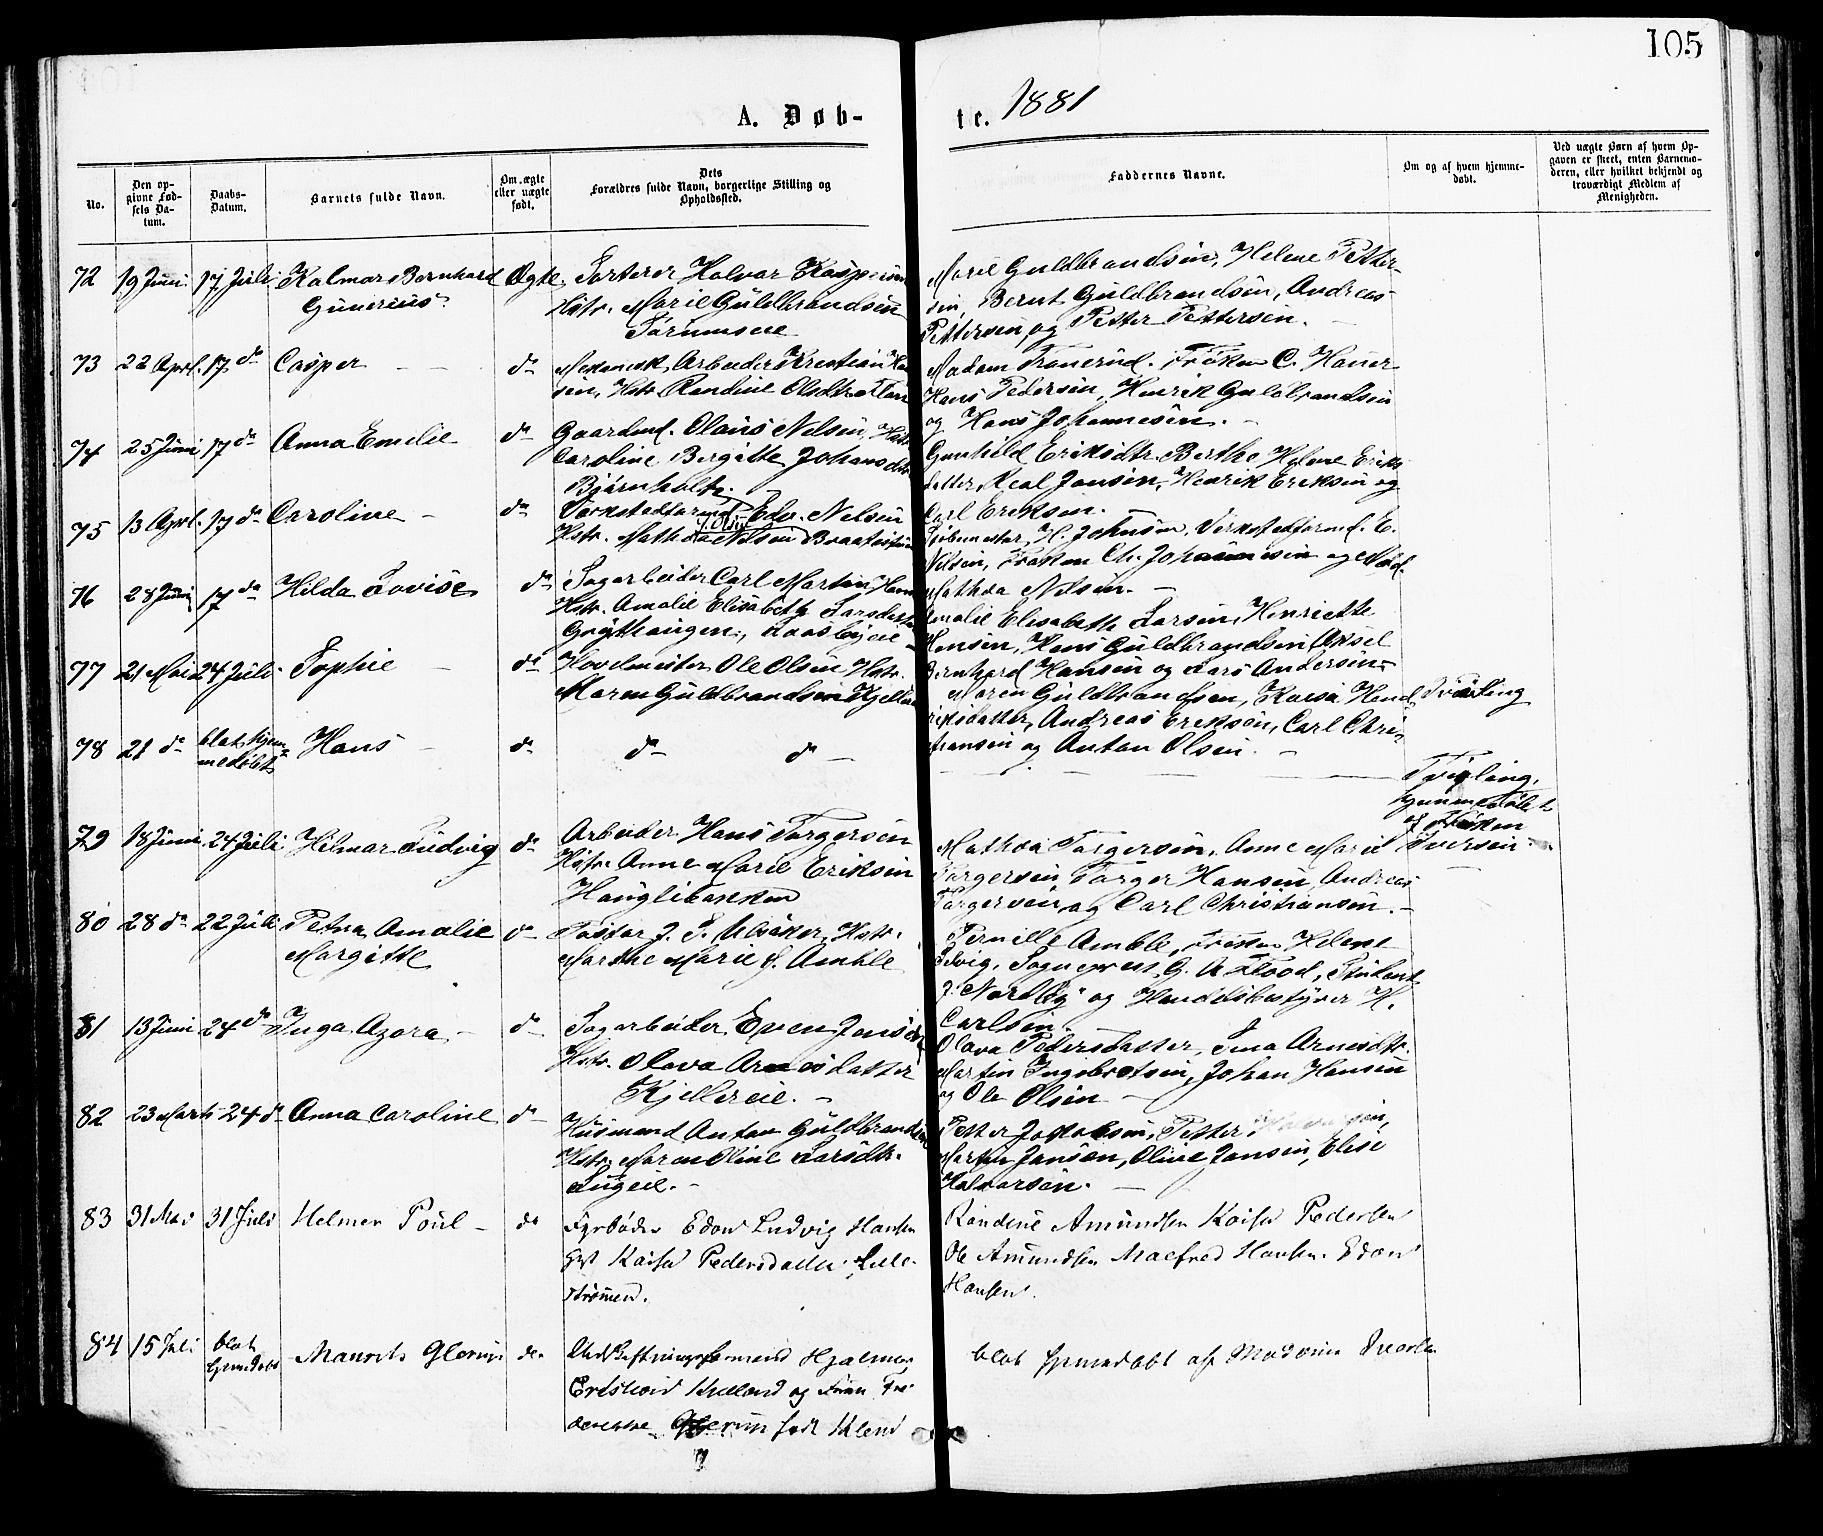 105
A. Døb-
te. 1881
No.
Den op-
givne Fød-
sels Da-
tum.
Daabs-
Datum.
Barnets fulde Navn.
Om ægte
eller uægte
født.
Dets
Forældres fulde Navn, borgerlige Stilling og
Opholdssted.
Faddernes Navne.
Om og af hvem hjemme-
døbt.
Ved uægte Børn af hvem Op-
gaven er skeet, enten Barnemo-
deren, eller hvilket bekjendt og
troværdigt Medlem af
Menigheden.
72 19 Juni 17 Juli Kalmar Bernhard Ægte Sorterer Halvar Kaspersen
Gunerius Hstr. Marie Guldbrandsen
Marie Guldbrandsen, Helene Petter-
sen, Bernt Guldbrandsen, Andreas
Pettersen, og Petter Pettersen.
73 22 Aprl. 17 do Casper do Mekanisk Arbeider Kristian Han
sen, Hstr. Randine Olsdtr.
Madam Tronerud. Frøken C. Hauer
Hans Pedersen, Henrik Guldbrandsen
og Hans Johannesen.
74 25 Juni 17 do Anna Emelie do Gaardmd. Olaus Nilsen, Hstr
Caroline Bergitte Johansdtr
Bjørnholt.
Gunhild Eriksdtr. Berthe Helene Eriks
datter, Karl Jansen, Henrik Eriksen og
Carl Eriksen.
75 13 Aprl. 17 do Caroline do Værkstedformd. Edv. Nilsen
Hstr. Mathea Nilsen f. Olsen
H. Johnsen, Verkstedformd. E.
Nilsen, Frøken Ch. Johannesen og Mad.
Mathea Nilsen.
76 28 Juni 17 do Hilda Lovise do Sagarbeider Carl Martin Han
Hstr. Amalie Elisabeth Larsdatter
Amalie Elisabeth Larsen, Henriette
Hansen, Hans Guldbrandsen, Aksel
Bernhard Hansen og Lars Andersen
77 21 Mai 24 Juli Sophie do Hovelmester Ole Olsen Hstr.
Maren Guldbrandsen Kjeller
Maren Guldbrandsen, Karen Hend
riksdatter, Andreas Eriksen, Carl Chri
stiansen og Anton Olsen.
Tvilling
78 21 do blot hjem
medøbt Hans do do do
Tvilling,
hjemmedøbt
af Frøken
Iversen
79 18 Juni 24 Juli Hilmar Ludvig do Arbeider Hans Torgersen
Hstr. Anne Marie Eriksen
Hauglibakken
Mathea Torgersen, Anne Marie
Torgersen, Torger Hansen, Andreas
Torgersen, og Carl Christiansen.
80 28 do 22 Juli Petra Amalie do Pastor J. S. Ulsaker, Hstr.
Margitte Marthe Marie f. Amble
Pernille Amble, Frøken Helene
Sogneprest G. A. Flood, Student
J. Nordby og Handelsbestyrer H.
Carlsen.
81 13 Juni 24 do Inga Azora do Sagarbeider Even Jensen
Hstr. Olava Arnesdatter
Kjellereie.
Olava Pedersdatter, Lina Arnesdtr.
Martin Ingebretsen, Johan Hansen
og Ole Olsen
82 23 Marts 24 do Anna Caroline do Husmand Anton Guldbrandsen
Hstr. Maren Oline Larsdtr.
Petter Jakobsen, Petter
Martin Jansen, Oline Jansen, Elise
Halvorsen.
83 31 Mai 31 Juli Helmer Poul do Fyrbøder Edon Ludvig Hansen
Hst Kaisa Pedersdatter Lille-
strømmen.
Randine Amundsen Kaisa Pedersen
Ole Amundsen Malfred Hansen. Edon
Hansen.
84 15 Juli blot
hjemdøbt Maurits Glerup do Udskiftningsformand Hjalmar
og Fru Fre
dericke Glerup født
blot hjemmedøbt af Madame